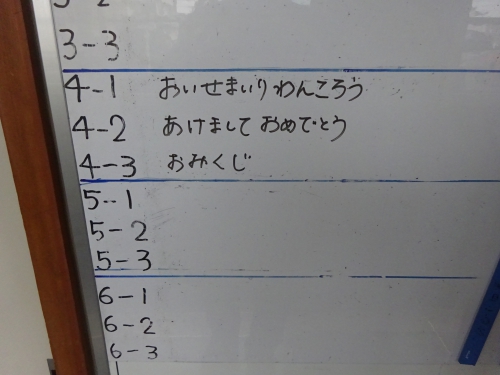 3-3
4-1 おいせまいりわんころう
4-2 あけまして おめでとう
4-3 おみくじ
5-1
5-2
5-3
6-1
6-2
6-3